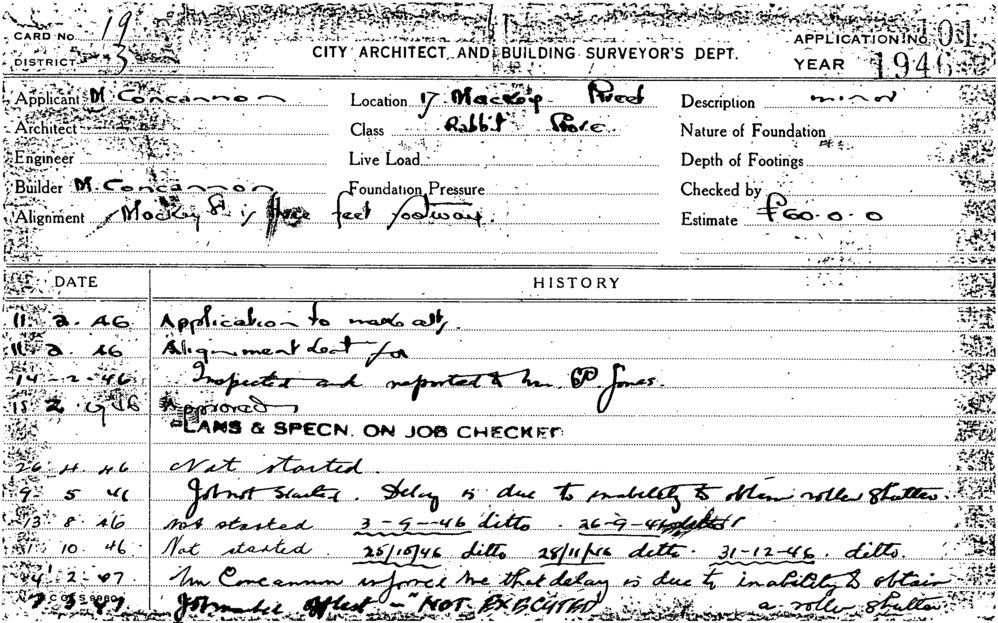 CARD No 19
DISTRICT 3
CITY ARCHITECT AND BUILDING SURVEYOR'S DEPT.
APPLICATION No. 101
YEAR 1946
Applicant M. Concannon
Location 17 Mackey Street
Description minor
Architect
Class Rabbit Store
Nature of Foundation
Engineer
Live Load
Depth of Footings
Builder M. Concannon
Foundation Pressure
Checked by
Alignment Mackey St. is three feet footway.
Estimate £60-0-0
DATE HISTORY
11 2. 46 Application to make alts.
11 2 46 Alignment sent for
14-2-46 Inspected and reported to Mr. Jones.
15 2 46 Approved
PLANS & SPECN. ON JOB CHECKED
26 4. 46 Not started.
9 5 46 Job not started. Delay is due to inability to obtain roller shutter.
13 8 46 Not started 3-9-46 ditto. 26-9-46 ditto
1 10 46 Not started. 25/10/46 ditto 28/11/46 ditto. 31-12-46. ditto.
4 2-47 Mr Concannon informed me that delay is due to inability to obtain a roller shutter.
7 3 47 Job marked off list - "NOT EXECUTED"